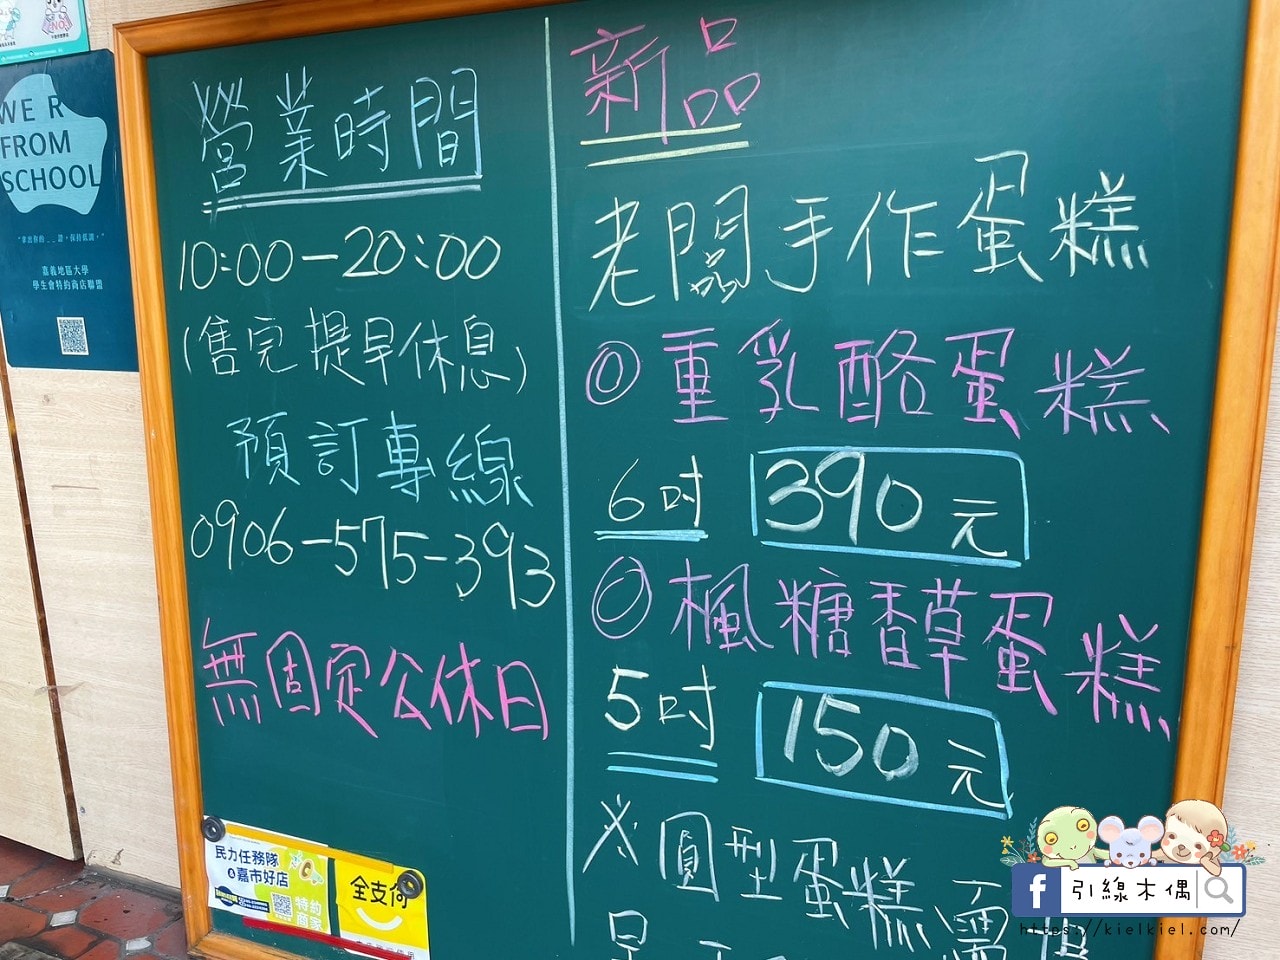 WE R
FROM
SCHOOL
嘉義地區大學
學生會特約商店聯盟
營業時間
10:00-20:00
(售完提早休息)
預訂專線
0906-575-393
無固定公休日
民力任務隊
嘉市好店
特約
商家
全支付
新品
老闆手作蛋糕
◎重乳酪蛋糕
6吋 390元
◎楓糖香草蛋糕
5吋 150元
※圓型蛋糕需
引線木偶
https://kielkiel.com/